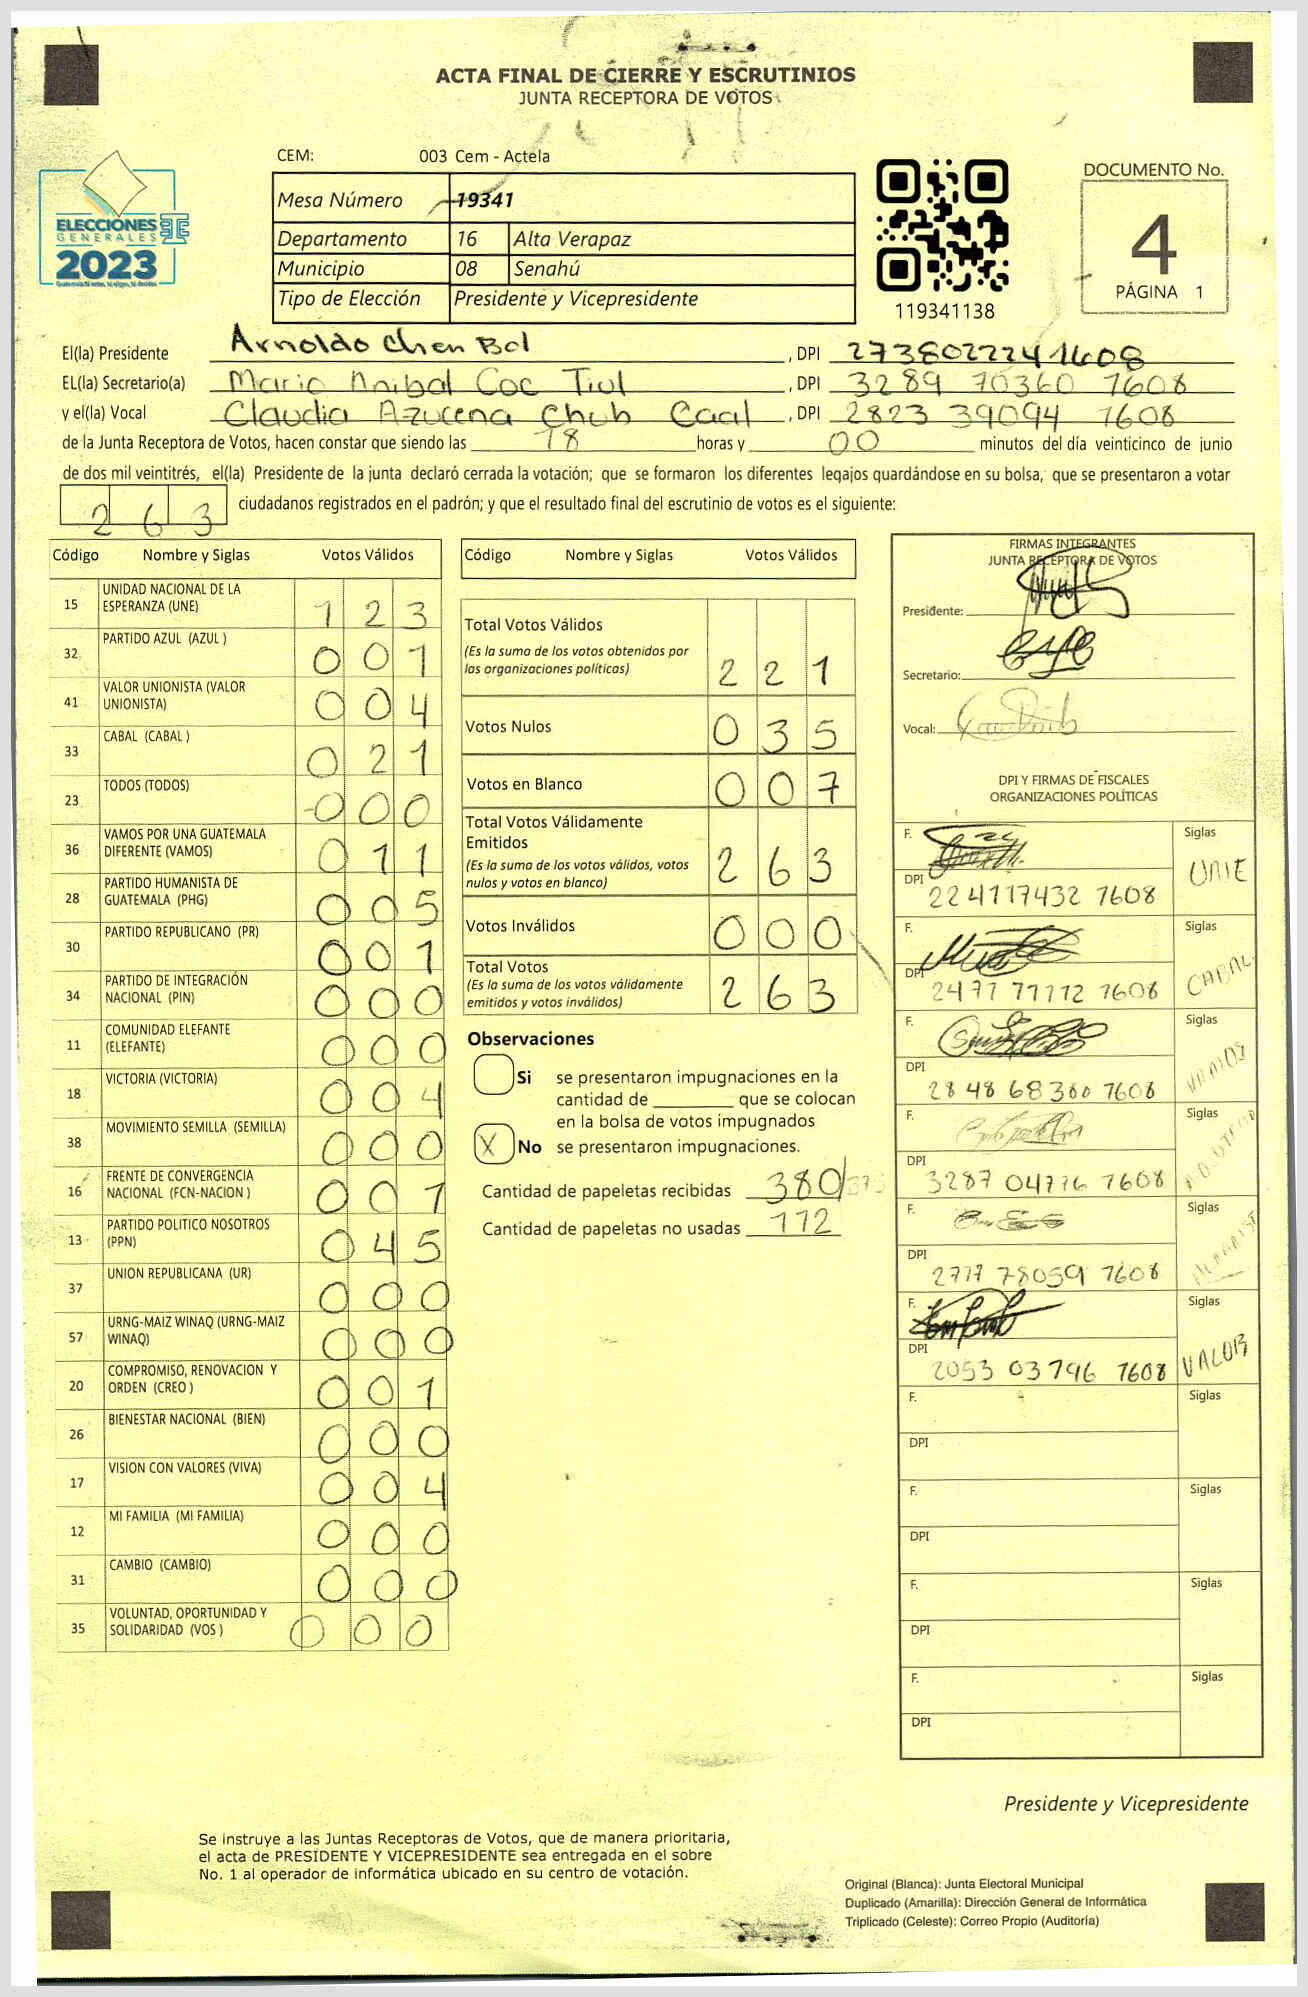 ACTA FINAL DE CIERRE Y ESCRUTINIOS
JUNTA RECEPTORA DE VOTOS
CEM: 003 Cem - Actela
ELECCIONES
GENERALES
2023
Mesa Número 19341
Departamento 16 Alta Verapaz
Municipio 08 Senahú
Tipo de Elección Presidente y Vicepresidente
119341138
DOCUMENTO No.
4
PÁGINA 1
El(la) Presidente Arnoldo Chen Bol, DPI 2738022241608
EL(la) Secretario(a) Mario Anibal Coc Tiul, DPI 3289 70360 1608
y el(la) Vocal Claudia Azucena Chub Caal, DPI 2823 39094 1608
de la Junta Receptora de Votos, hacen constar que siendo las 18 horas y 00 minutos del día veinticinco de junio
de dos mil veintitrés, el(la) Presidente de la junta declaró cerrada la votación; que se formaron los diferentes legajos guardándose en su bolsa, que se presentaron a votar
263 ciudadanos registrados en el padrón; y que el resultado final del escrutinio de votos es el siguiente:
Código Nombre y Siglas Votos Válidos
15 UNIDAD NACIONAL DE LA ESPERANZA (UNE) 123
32 PARTIDO AZUL (AZUL ) 001
41 VALOR UNIONISTA (VALOR UNIONISTA) 004
33 CABAL (CABAL ) 021
23 TODOS (TODOS) 000
36 VAMOS POR UNA GUATEMALA DIFERENTE (VAMOS) 011
28 PARTIDO HUMANISTA DE GUATEMALA (PHG) 005
30 PARTIDO REPUBLICANO (PR) 001
34 PARTIDO DE INTEGRACIÓN NACIONAL (PIN) 000
11 COMUNIDAD ELEFANTE (ELEFANTE) 000
18 VICTORIA (VICTORIA) 004
38 MOVIMIENTO SEMILLA (SEMILLA) 000
16 FRENTE DE CONVERGENCIA NACIONAL (FCN-NACION ) 001
13 PARTIDO POLITICO NOSOTROS (PPN) 045
37 UNION REPUBLICANA (UR) 000
57 URNG-MAIZ WINAQ (URNG-MAIZ WINAQ) 000
20 COMPROMISO, RENOVACION Y ORDEN (CREO ) 001
26 BIENESTAR NACIONAL (BIEN) 000
17 VISION CON VALORES (VIVA) 004
12 MI FAMILIA (MI FAMILIA) 000
31 CAMBIO (CAMBIO) 000
35 VOLUNTAD, OPORTUNIDAD Y SOLIDARIDAD (VOS ) 000
Código Nombre y Siglas Votos Válidos
Total Votos Válidos 221
(Es la suma de los votos obtenidos por
las organizaciones políticas)
Votos Nulos 035
Votos en Blanco 007
Total Votos Válidamente
Emitidos 263
(Es la suma de los votos válidos, votos
nulos y votos en blanco)
Votos Inválidos 000
Total Votos 263
(Es la suma de los votos válidamente
emitidos y votos inválidos)
Observaciones
Si se presentaron impugnaciones en la
cantidad de ________ que se colocan
en la bolsa de votos impugnados
X No se presentaron impugnaciones.
Cantidad de papeletas recibidas 380/375
Cantidad de papeletas no usadas 112
FIRMAS INTEGRANTES
JUNTA RECEPTORA DE VOTOS
Presidente:
Secretario:
Vocal:
DPI Y FIRMAS DE FISCALES
ORGANIZACIONES POLÍTICAS
F. Siglas UNE
DPI 224117432 1608
F. Siglas CABAL
DPI 2477 77112 1608
F. Siglas VAMOS
DPI 2848 68380 1608
F. Siglas
DPI 3287 04776 1608
F. Siglas
DPI 2717 78059 1608
F. Siglas VALOR
DPI 2053 03796 1608
F. Siglas
DPI
F. Siglas
DPI
F. Siglas
DPI
F. Siglas
DPI
Presidente y Vicepresidente
Se instruye a las Juntas Receptoras de Votos, que de manera prioritaria,
el acta de PRESIDENTE Y VICEPRESIDENTE sea entregada en el sobre
No. 1 al operador de informática ubicado en su centro de votación.
Original (Blanca): Junta Electoral Municipal
Duplicado (Amarilla): Dirección General de Informática
Triplicado (Celeste): Correo Propio (Auditoría)